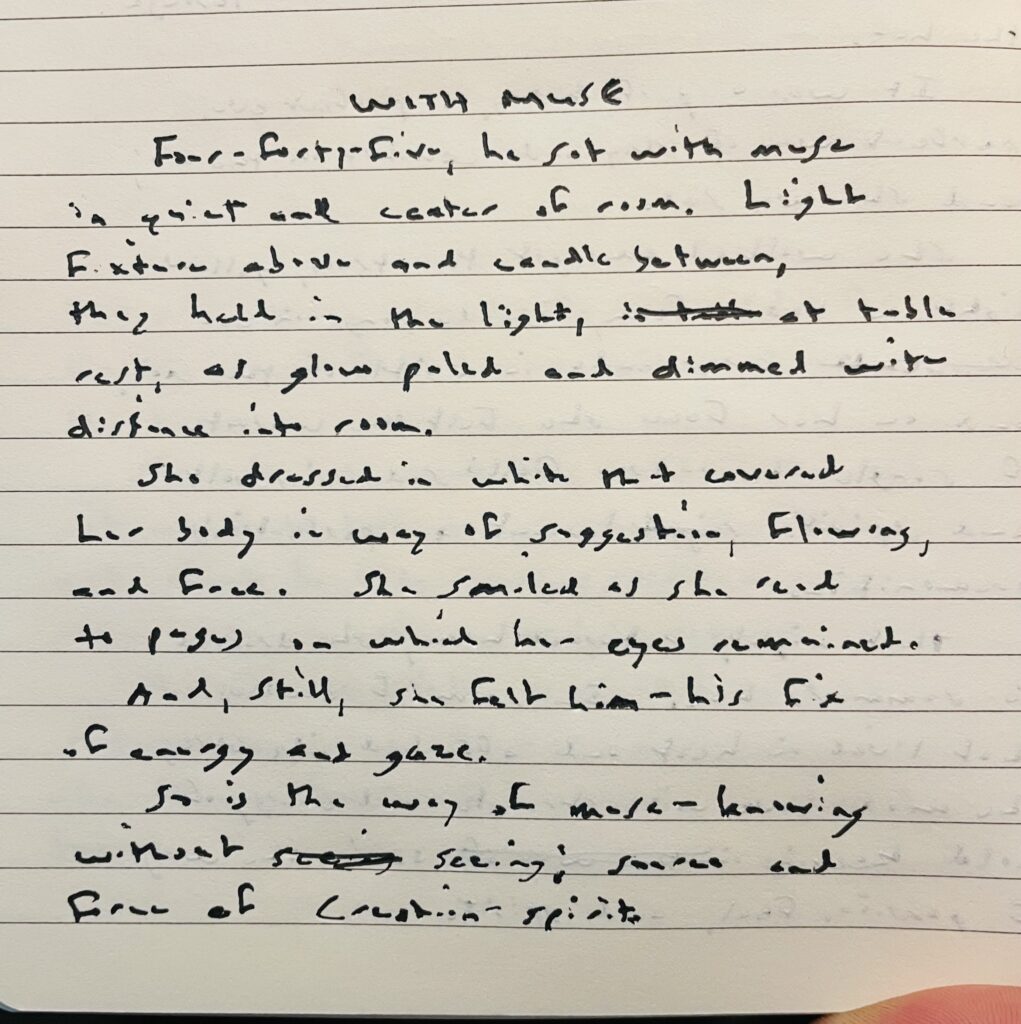 WITH MUSE
Four-forty-five, he sat with muse
in quiet and center of room. Light
fixture above and candle between,
they held in the light, at table
rest, as glow paled and dimmed with
distance into room.
She dressed in white that covered
her body in way of suggestion, flowing,
and free. She smiled as she read
to pages on which her eyes remained.
And, still, she felt him - his fix
of energy and gaze.
So is the way of muse - knowing
without seeing; source and
force of creation-spirit.